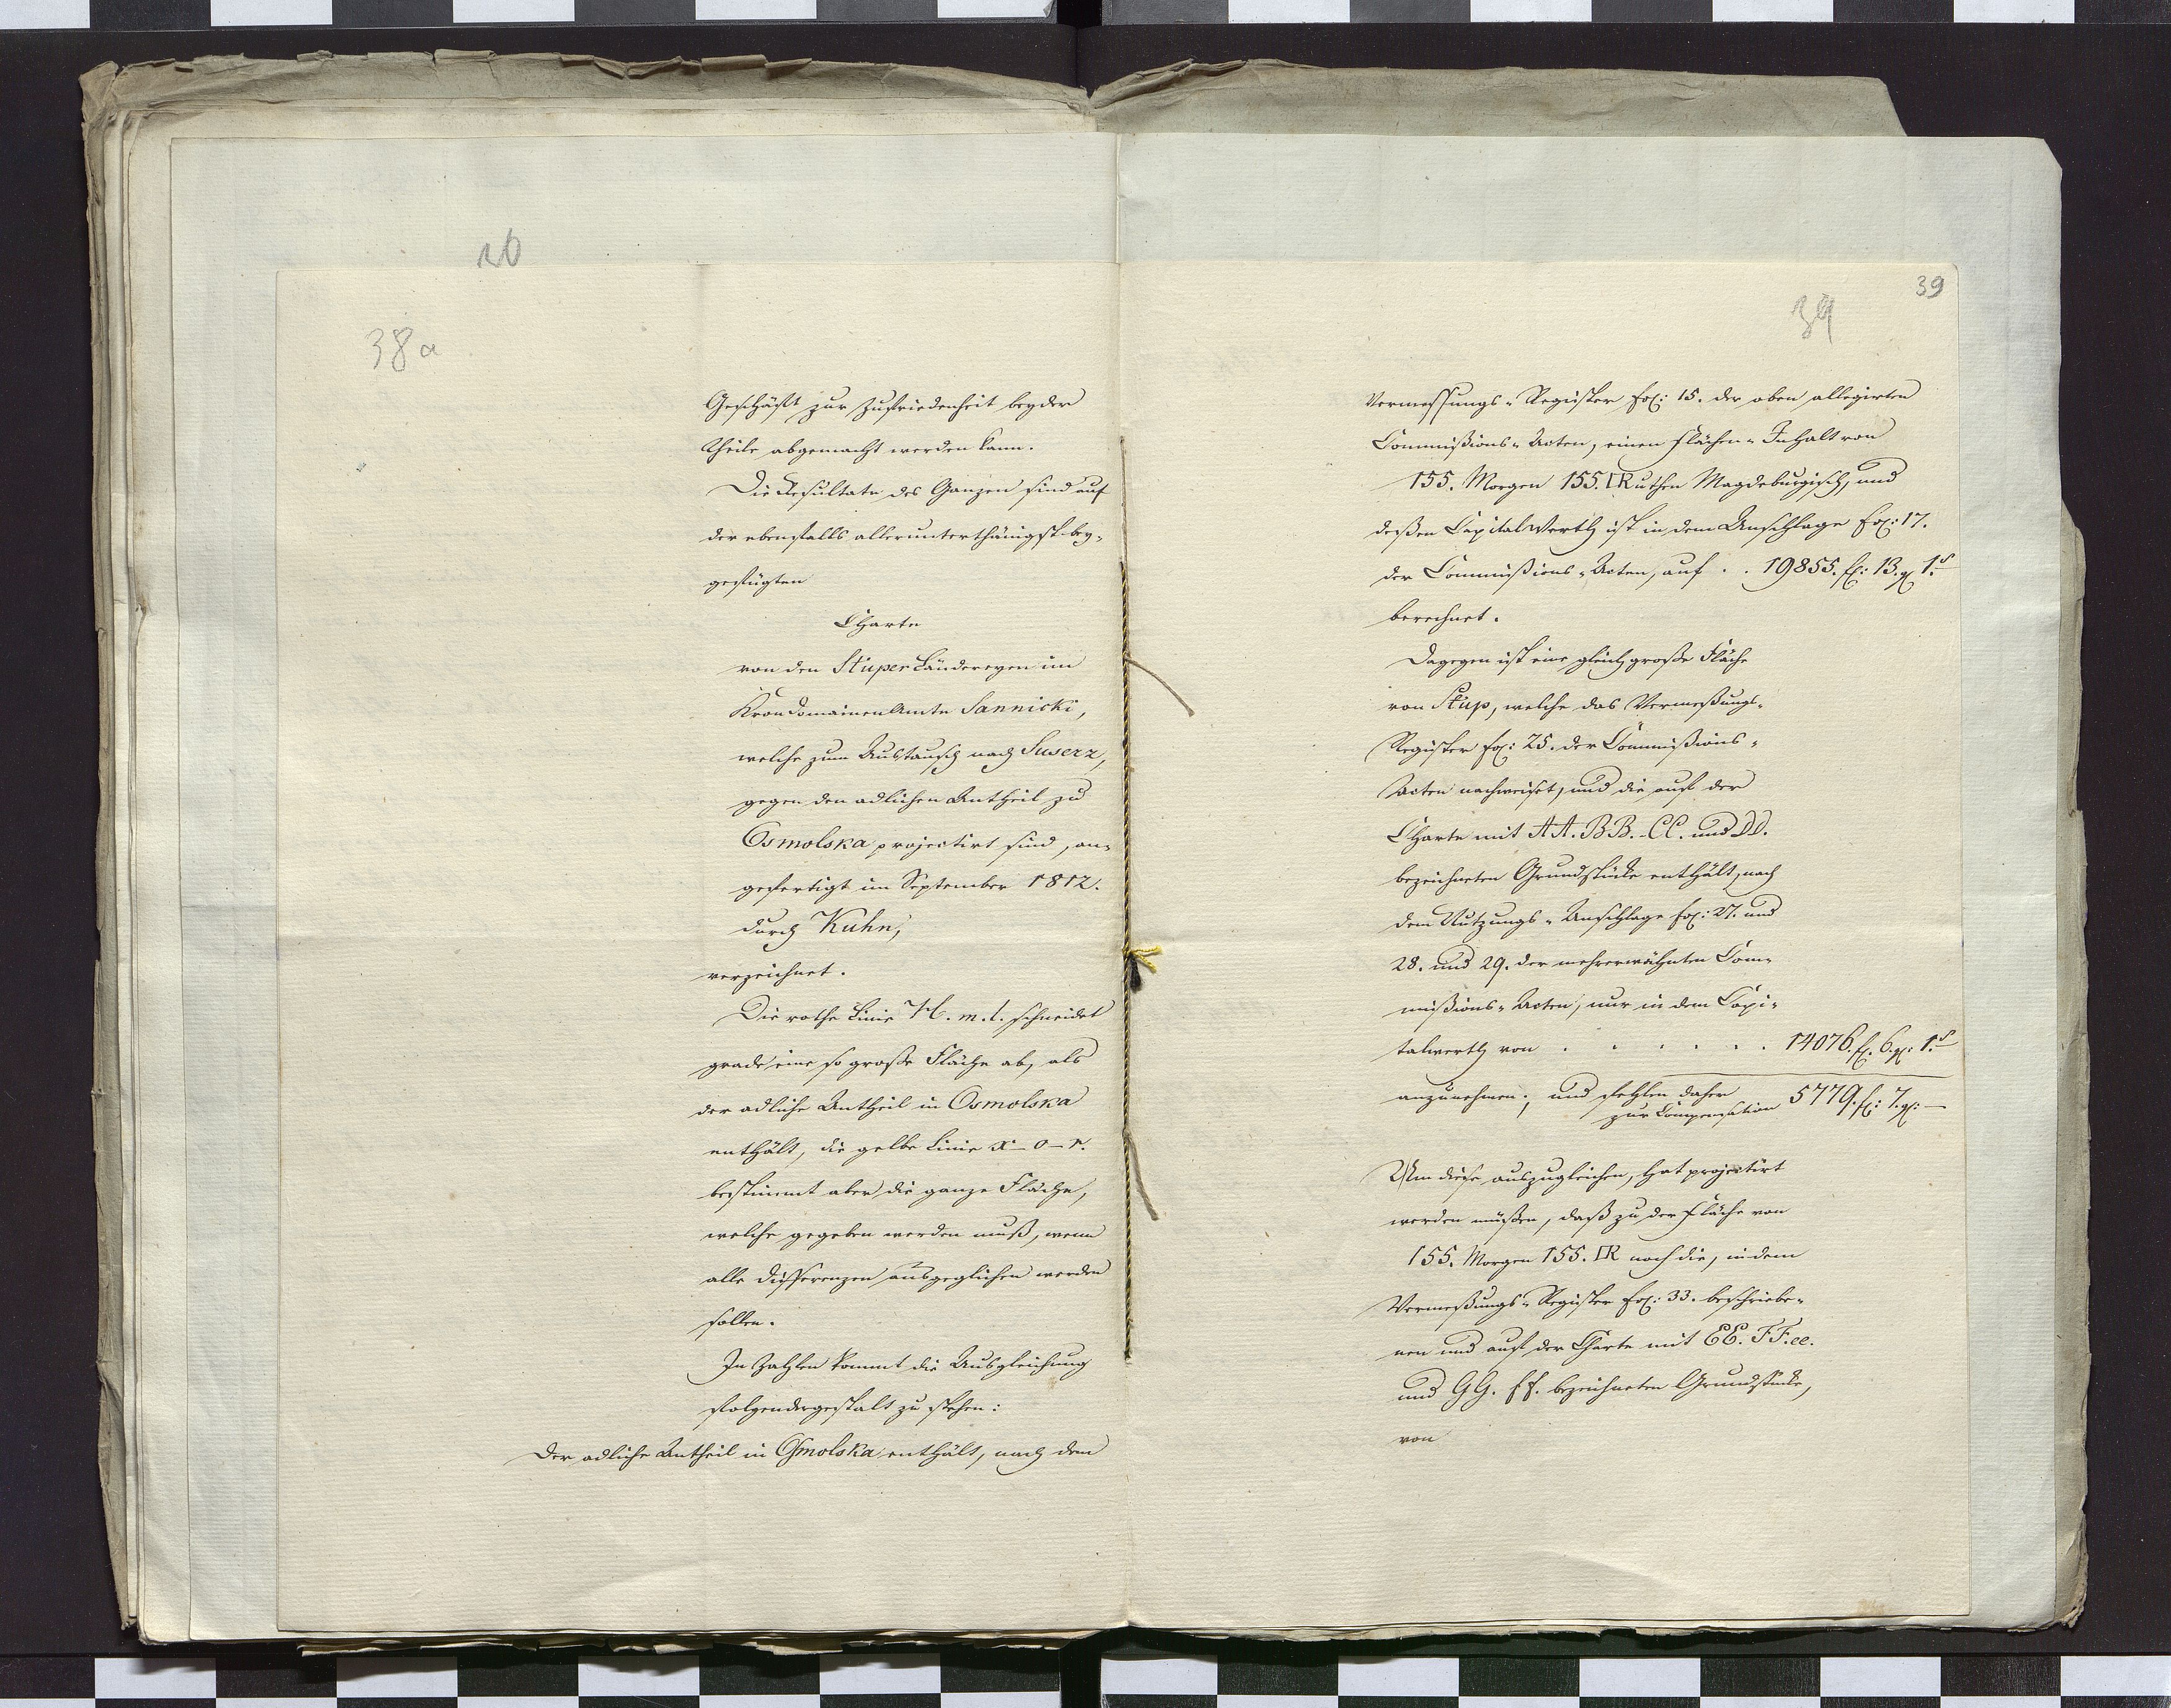 38a
Geschäft zur Zufriedenheit beyder
Theile abgemacht werden kann.
Die Resultate des Ganzen sind auf
der ebenfalls allerunterthänigst bey-
gefügten
Charte
von den Stuper Ländereyen im
Krondomainen Amte Sannicki,
welche zum Austausch nach Suserz,
gegen den adlichen Antheil zu
Osmolska projectirt sind, an-
gefertigt im September 1812.
durch Kuhn,
verzeichnet.
Die rothe Linie H. m. l. schneidet
grade eine so große Fläche ab, als
der adliche Antheil in Osmolska
enthält, die gelbe Linie x – o – r.
bestimmt aber die ganze Fläche,
welche gegeben werden muß, wenn
alle Differenzen ausgeglichen werden
sollen.
In Zahlen kommt die Ausgleichung
folgendergestalt zu stehen:
Der adliche Antheil in Osmolska enthält, nach dem
39
39
Vermessungs-Register fol: 15. der oben allegirten
Commißions-Acten, einen Flächen-Inhalt von
155. Morgen 155. □Ruthen Magdeburgisch, und
deßen Capital Werth ist in dem Anschlage fol: 17.
der Commißions-Acten, auf . . 19855. fl: 13. gl 1. d
berechnet.
Dagegen ist eine gleich große Fläche
von Stup, welche das Vermeßungs-
Register fol: 25. der Commißions-
Acten nachweiset, und die auf der
Charte mit AA. BB. CC. und DD.
bezeichneten Grundstücke enthält, nach
dem Nutzungs-Anschlage fol: 27. und
28. und 29. der mehrerwähnten Com-
mißions-Acten, nur in dem Capi-
talwerth von . . . . . . 14076. fl. 6. gl: 1. d
anzunehmen; und fehlen daher
zur Compensation 5779. fl: 7. gl: —
Um diese auszugleichen, hat projectirt
werden müßen, daß zu der Fläche von
155. Morgen 155. □R noch die, in dem
Vermeßungs-Register fol: 33. beschriebe-
nen und auf der Charte mit EE. FF. ee.
und GG. ff. bezeichneten Grundstücke,
von